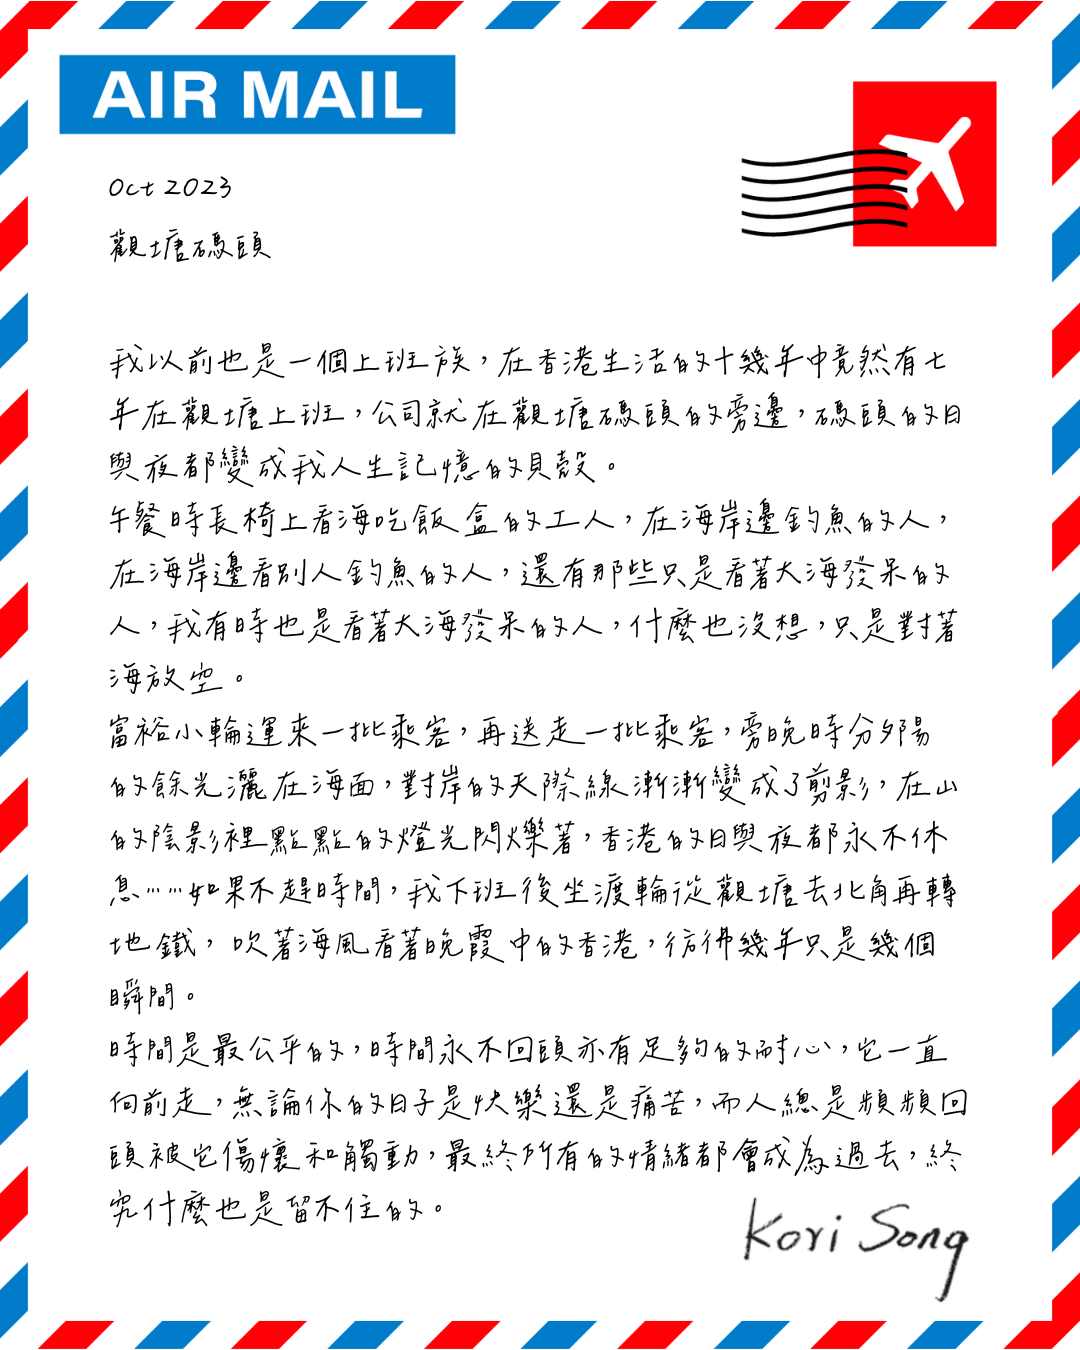 AIR MAIL
Oct 2023
觀塘碼頭
我以前也是一個上班族，在香港生活的十幾年中竟然有七
年在觀塘上班，公司就在觀塘碼頭的旁邊，碼頭的日
與夜都變成我人生記憶的貝殼。
午餐時長椅上看海吃飯盒的工人，在海岸邊釣魚的人，
在海岸邊看別人釣魚的人，還有那些只是看著大海發呆的
人，我有時也是看著大海發呆的人，什麼也沒想，只是對著
海放空。
富裕小輪運來一批乘客，再送走一批乘客，旁晚時分夕陽
的餘光灑在海面，對岸的天際線漸漸變成了剪影，在山
的陰影裡點點的燈光閃爍著，香港的日與夜都永不休
息……如果不趕時間，我下班後坐渡輪從觀塘去北角再轉
地鐵，吹著海風看著晚霞中的香港，彷彿幾年只是幾個
瞬間。
時間是最公平的，時間永不回頭亦有足夠的耐心，它一直
向前走，無論你的日子是快樂還是痛苦，而人總是頻頻回
頭被它傷懷和觸動，最終所有的情緒都會成為過去，終
究什麼也是留不住的。
Kori Song